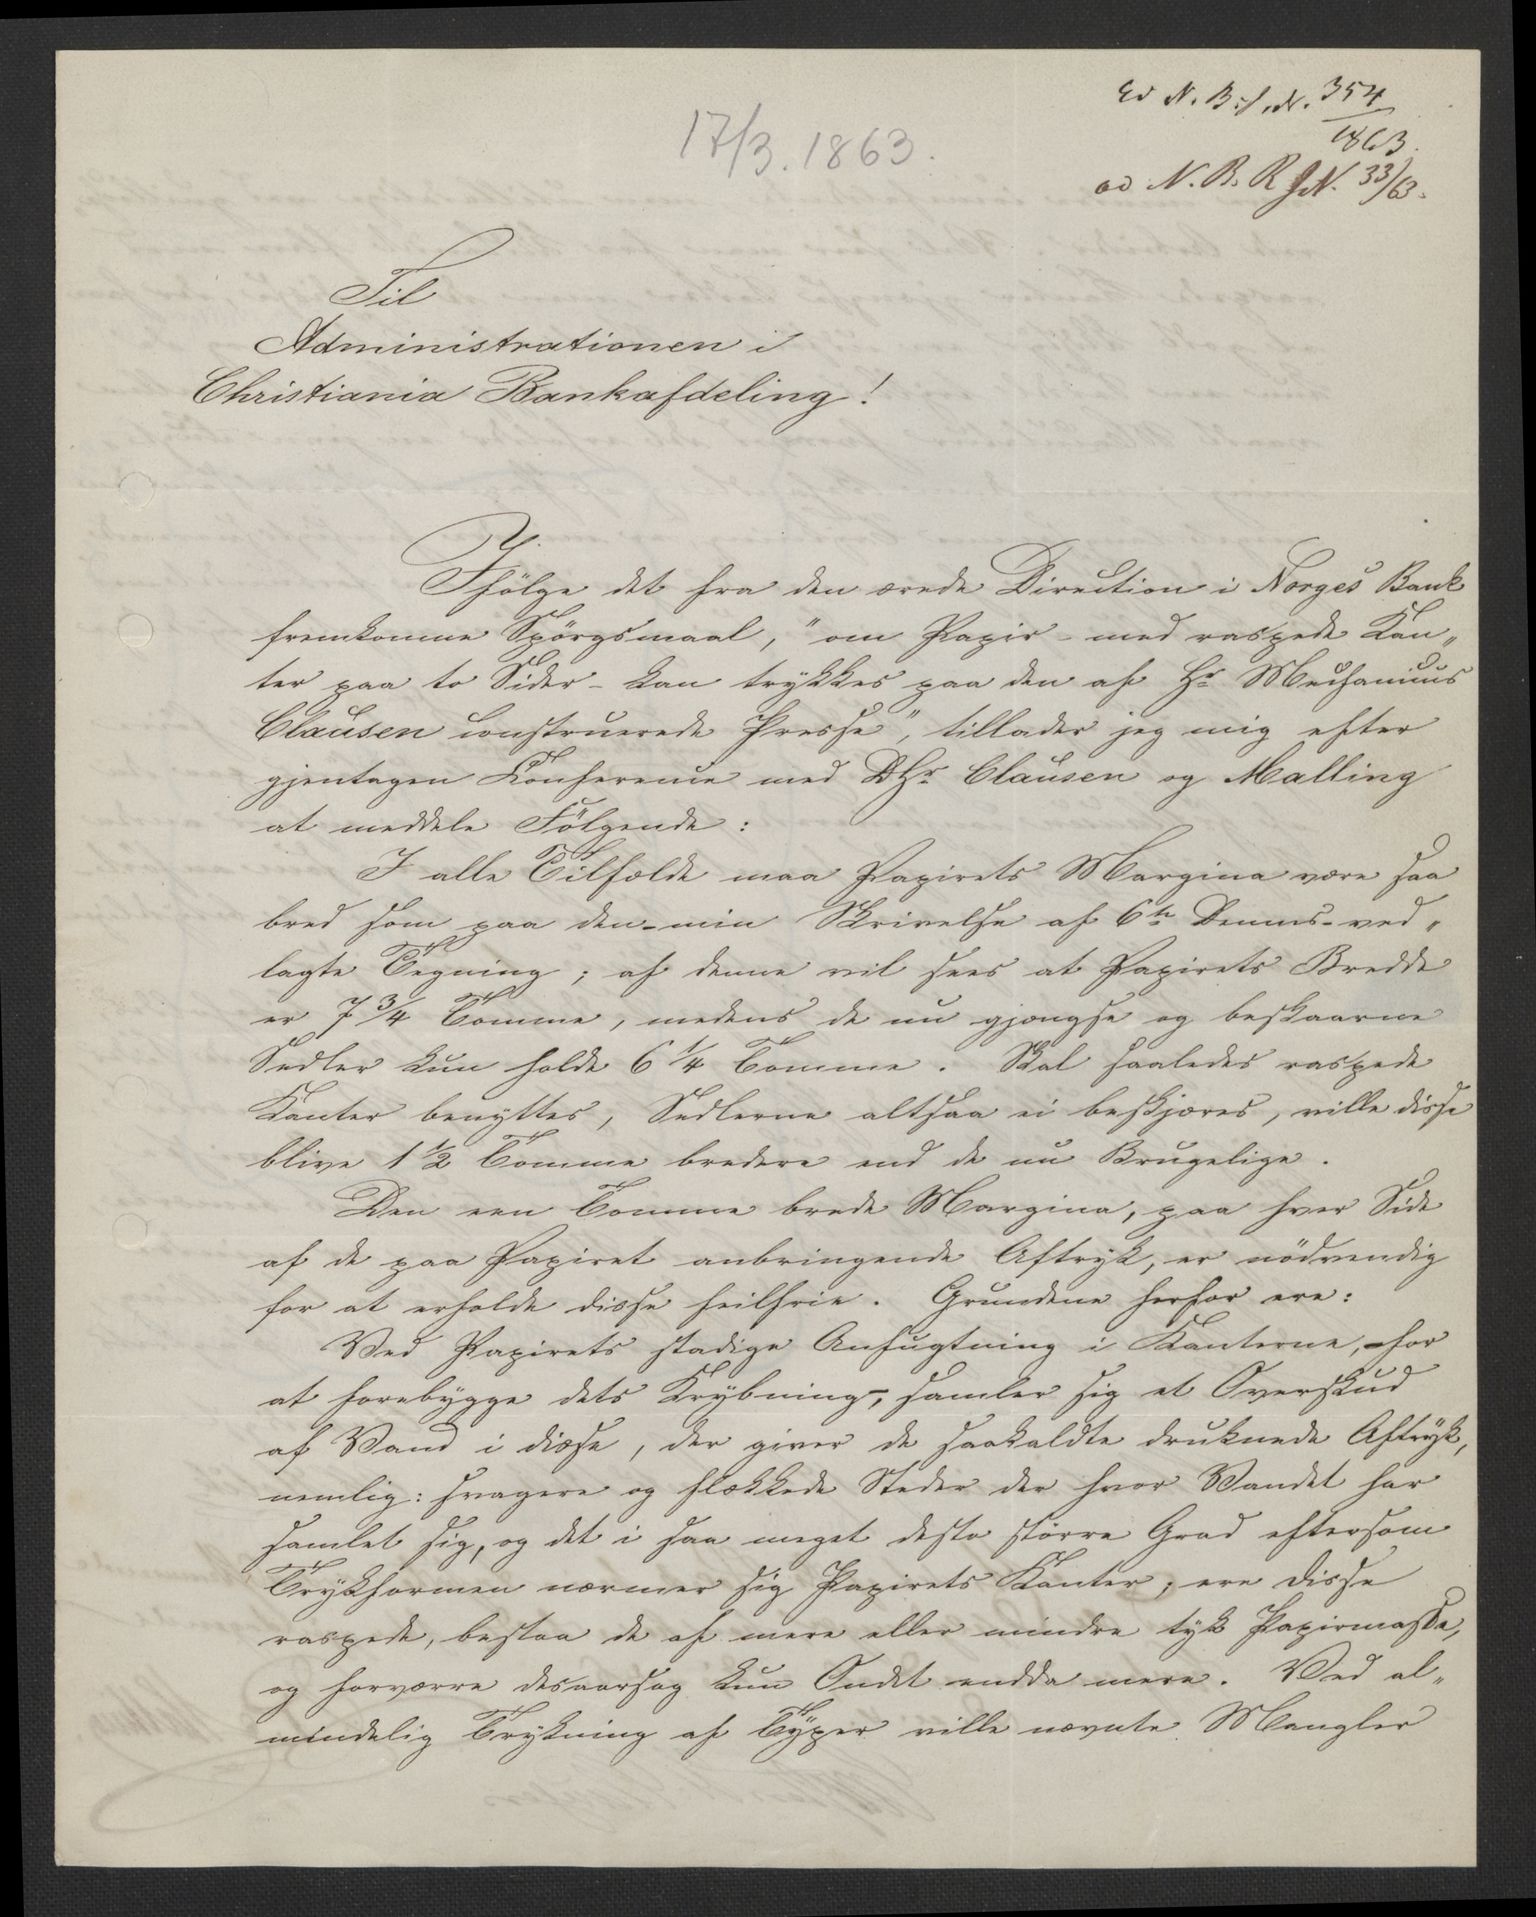 ad N. B. J. N. 354
1863.
ad N. B. R JN. 33/63.
17/3. 1863.
Til
Administrationen i
Christiania Bankafdeling!
Ifølge det fra den ærede Direction i Norges Bank
fremkomne Spörgsmaal, "om Papir - med raspede Kan„
ter paa to Sider - kan trykkes paa den af Hr Mechanicus
Clausen construerede Presse", tillader jeg mig efter
gjentagen Konference med DHr. Clausen og Malling
at meddele Fölgende:
I alle Tilfælde maa Papirets Margina være saa
bred som paa den - min Skrivelse af 6te Dennes - ved„
lagte Tegning; af denne vil sees at Papirets Bredde
er 7 3/4 Tomme, medens de nu gjængse og beskaarne
Sedler kun holde 6 1/4 Tomme. Skal saaledes raspede
Kanter benyttes, Sedlerne altsaa ei beskjæres, ville disse
blive 1 1/2 Tomme bredere end de nu Brugelige.
Den een Tomme brede Margina, paa hver Side
af de paa Papiret anbringende Aftryk, er nödvendig
for at erholde disse feilfrie. Grundene herfor ere:
Ved Papirets stadige Anfugtning i Kanterne, - for
at forebygge dets Krybning -, samler sig et Overskud
af Vand i disse, der giver de saakaldte druknede Aftryk,
nemlig: svagere og flækkede Steder der hvor Vandet har
samlet sig, og det i saa meget desto större Grad eftersom
Trykformen nærmer sig Papirets Kanter; ere disse
raspede, bestaa de af mere eller mindre tyk Papirmasse,
og forværre desaarsag kun Ondet endda mere. Ved al„
mindelig Trykning af Typer ville nævnte Mangler